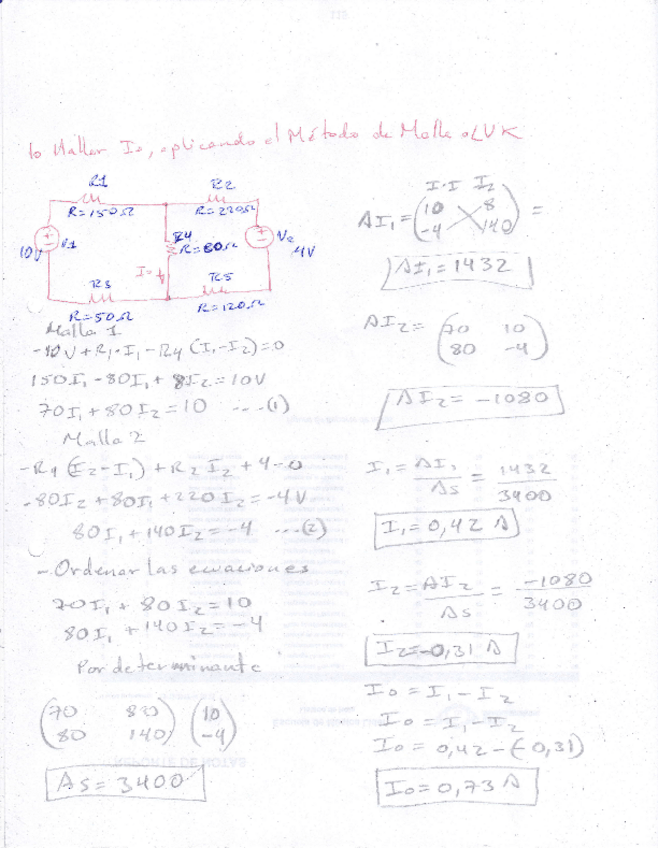 Hallar Io, aplicando el Método de Malla o LVK
R1
R=150Ω
R2
R=220Ω
10V
V1
R4
V2
4V
I=
R3
R=50Ω
R5
R=120Ω
Malla 1
-10V+R1·I1-R4(I1-I2)=0
150I1-80I1+8I2=10V
70I1+80I2=10 ---(1)
Malla 2
-R4(I2-I1)+R2I2+4=0
-80I2+80I1+220I2=-4V
80I1+140I2=-4 ---(2)
-Ordenar las ecuaciones
70I1+80I2=10
80I1+140I2=-4
Por determinante
(70 80) (10)
(80 140) (-4)
As=3400
I.I I2
ΔI1=(10 8) =
(-4 140)
ΔI1=1432
ΔI2=(70 10)
(80 -4)
ΔI2=-1080
I1=ΔI1/Δs=1432/3400
I1=0,42 A
I2=ΔI2/Δs=-1080/3400
I2=-0,31 A
Io=I1-I2
Io=I1-I2
Io=0,42-(-0,31)
Io=0,73 A